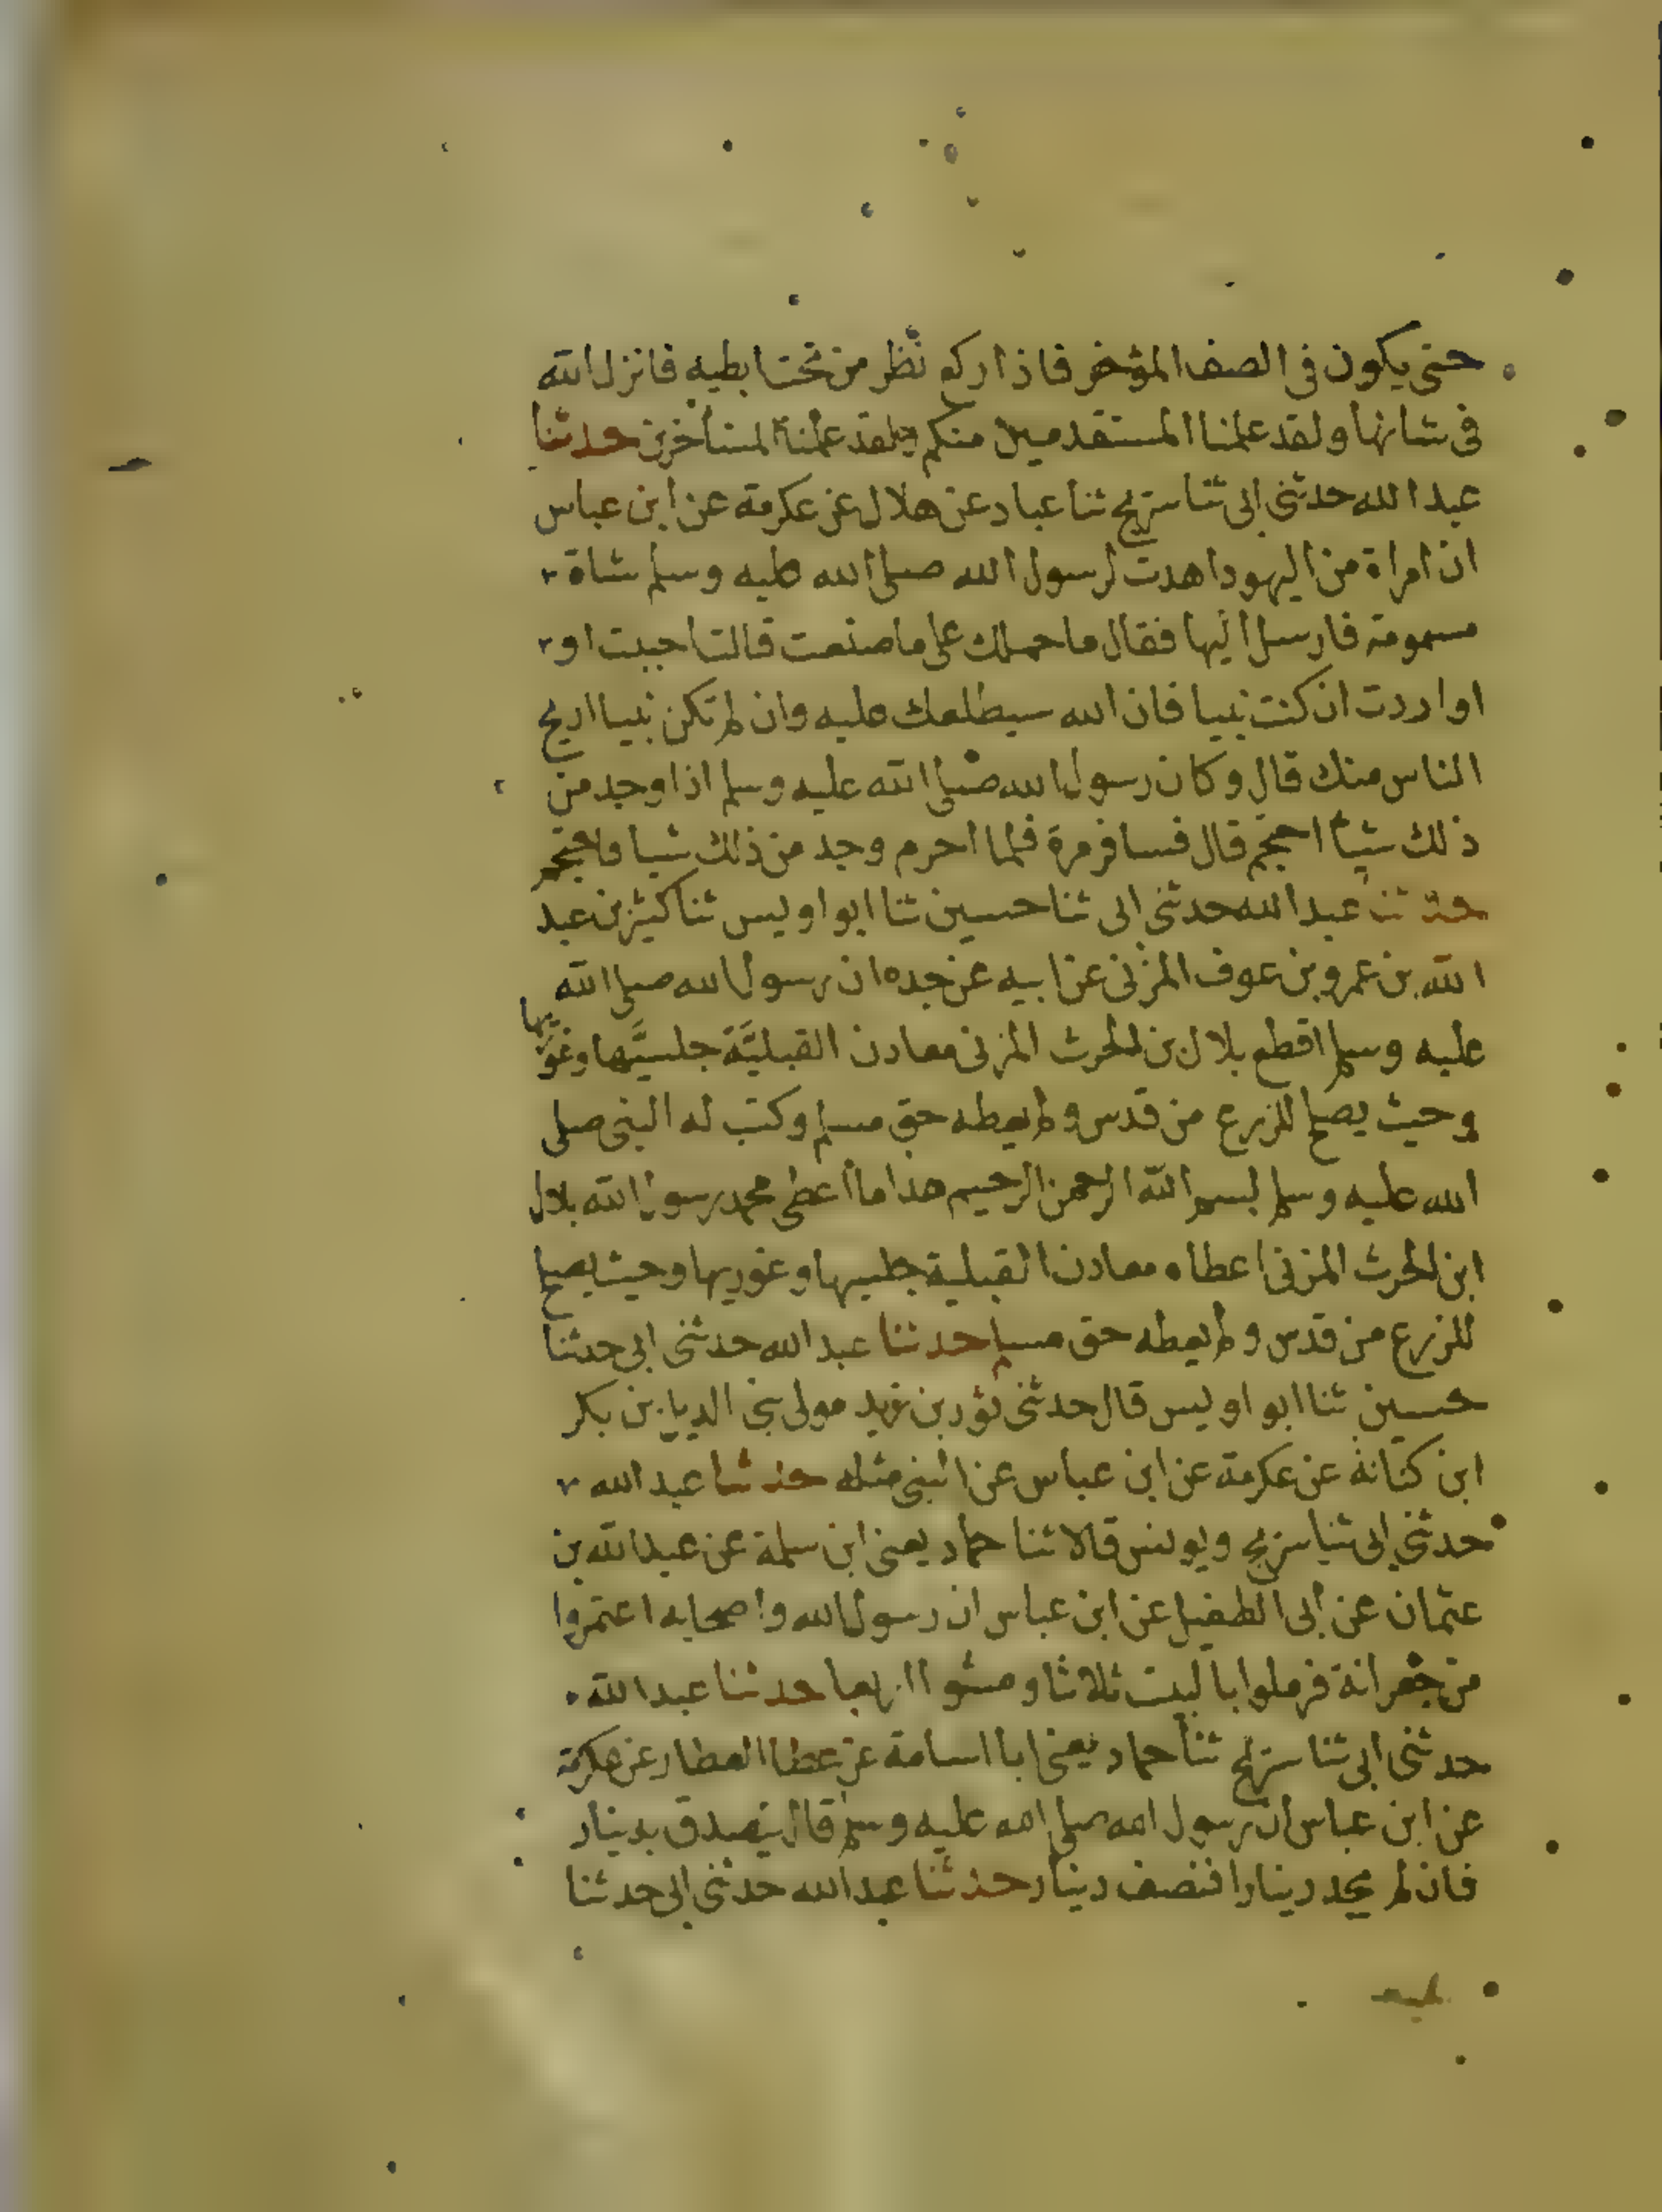 حتى يكون فى الصف المؤخر فاذا ركع نظر من تحت ابطيه فانزل الله
فى شانها ولقد علمنا المستقدمين منكم ولقد علمنا المستأخرين حدثنا
عبد الله حدثنى ابى ثنا سريج ثنا عباد عن هلال عن عكرمة عن ابن عباس
ان امراة من اليهود اهدت لرسول الله صلى الله عليه وسلم شاة
مسمومة فارسل اليها فقال ما حملك على ما صنعت قالت احببت او
او اردت ان كنت نبيا فان الله سيطلعك عليه وان لم تكن نبيا اريح
الناس منك قال وكان رسول الله صلى الله عليه وسلم اذا وجد من
ذلك شيئا احتجم قال فسافر مرة فلما احرم وجد من ذلك شيا فاحتجم
حدثنا عبد الله حدثنى ابى ثنا حسين ثنا ابو اويس ثنا كثير بن عبد
الله بن عمرو بن عوف المزنى عن ابيه عن جده ان رسول الله صلى الله
عليه وسلم اقطع بلال بن الحرث المزنى معادن القبليَّة جلسيَّها وغوريها
وحيث يصلح للزرع من قدس ولم يعطه حق مسلم وكتب له النبى صلى
الله عليه وسلم بسم الله الرحمن الرحيم هذا ما أعطى محمد رسول الله بلال
ابن الحرث المزنى اعطاه معادن القبلية جلسيها وغوريها وحيث يصلح
للزرع من قدس ولم يعطه حق مسلم حدثنا عبد الله حدثنى ابى حدثنا
حسين ثنا ابو اويس قال حدثنى ثور بن زيد مولى بنى الديل بن بكر
ابن كنانة عن عكرمة عن ابن عباس عن النبى مثله حدثنا عبد الله
حدثنى ابى ثنا سريج ويونس قالا ثنا حماد يعنى ابن سلمة عن عبد الله بن
عثمان عن ابى الطفيل عن ابن عباس ان رسول الله واصحابه اعتمروا
من جعرانة فرملوا بالبيت ثلاثا ومشوا اربعا حدثنا عبد الله
حدثنى ابى ثنا سريج ثنا حماد يعنى ابا اسامة عن عطا العطار عن عكرمة
عن ابن عباس ان رسول الله صلى الله عليه وسلم قال يتصدق بدينار
فان لم يجد دينارا فنصف دينار حدثنا عبد الله حدثنى ابى حدثنا